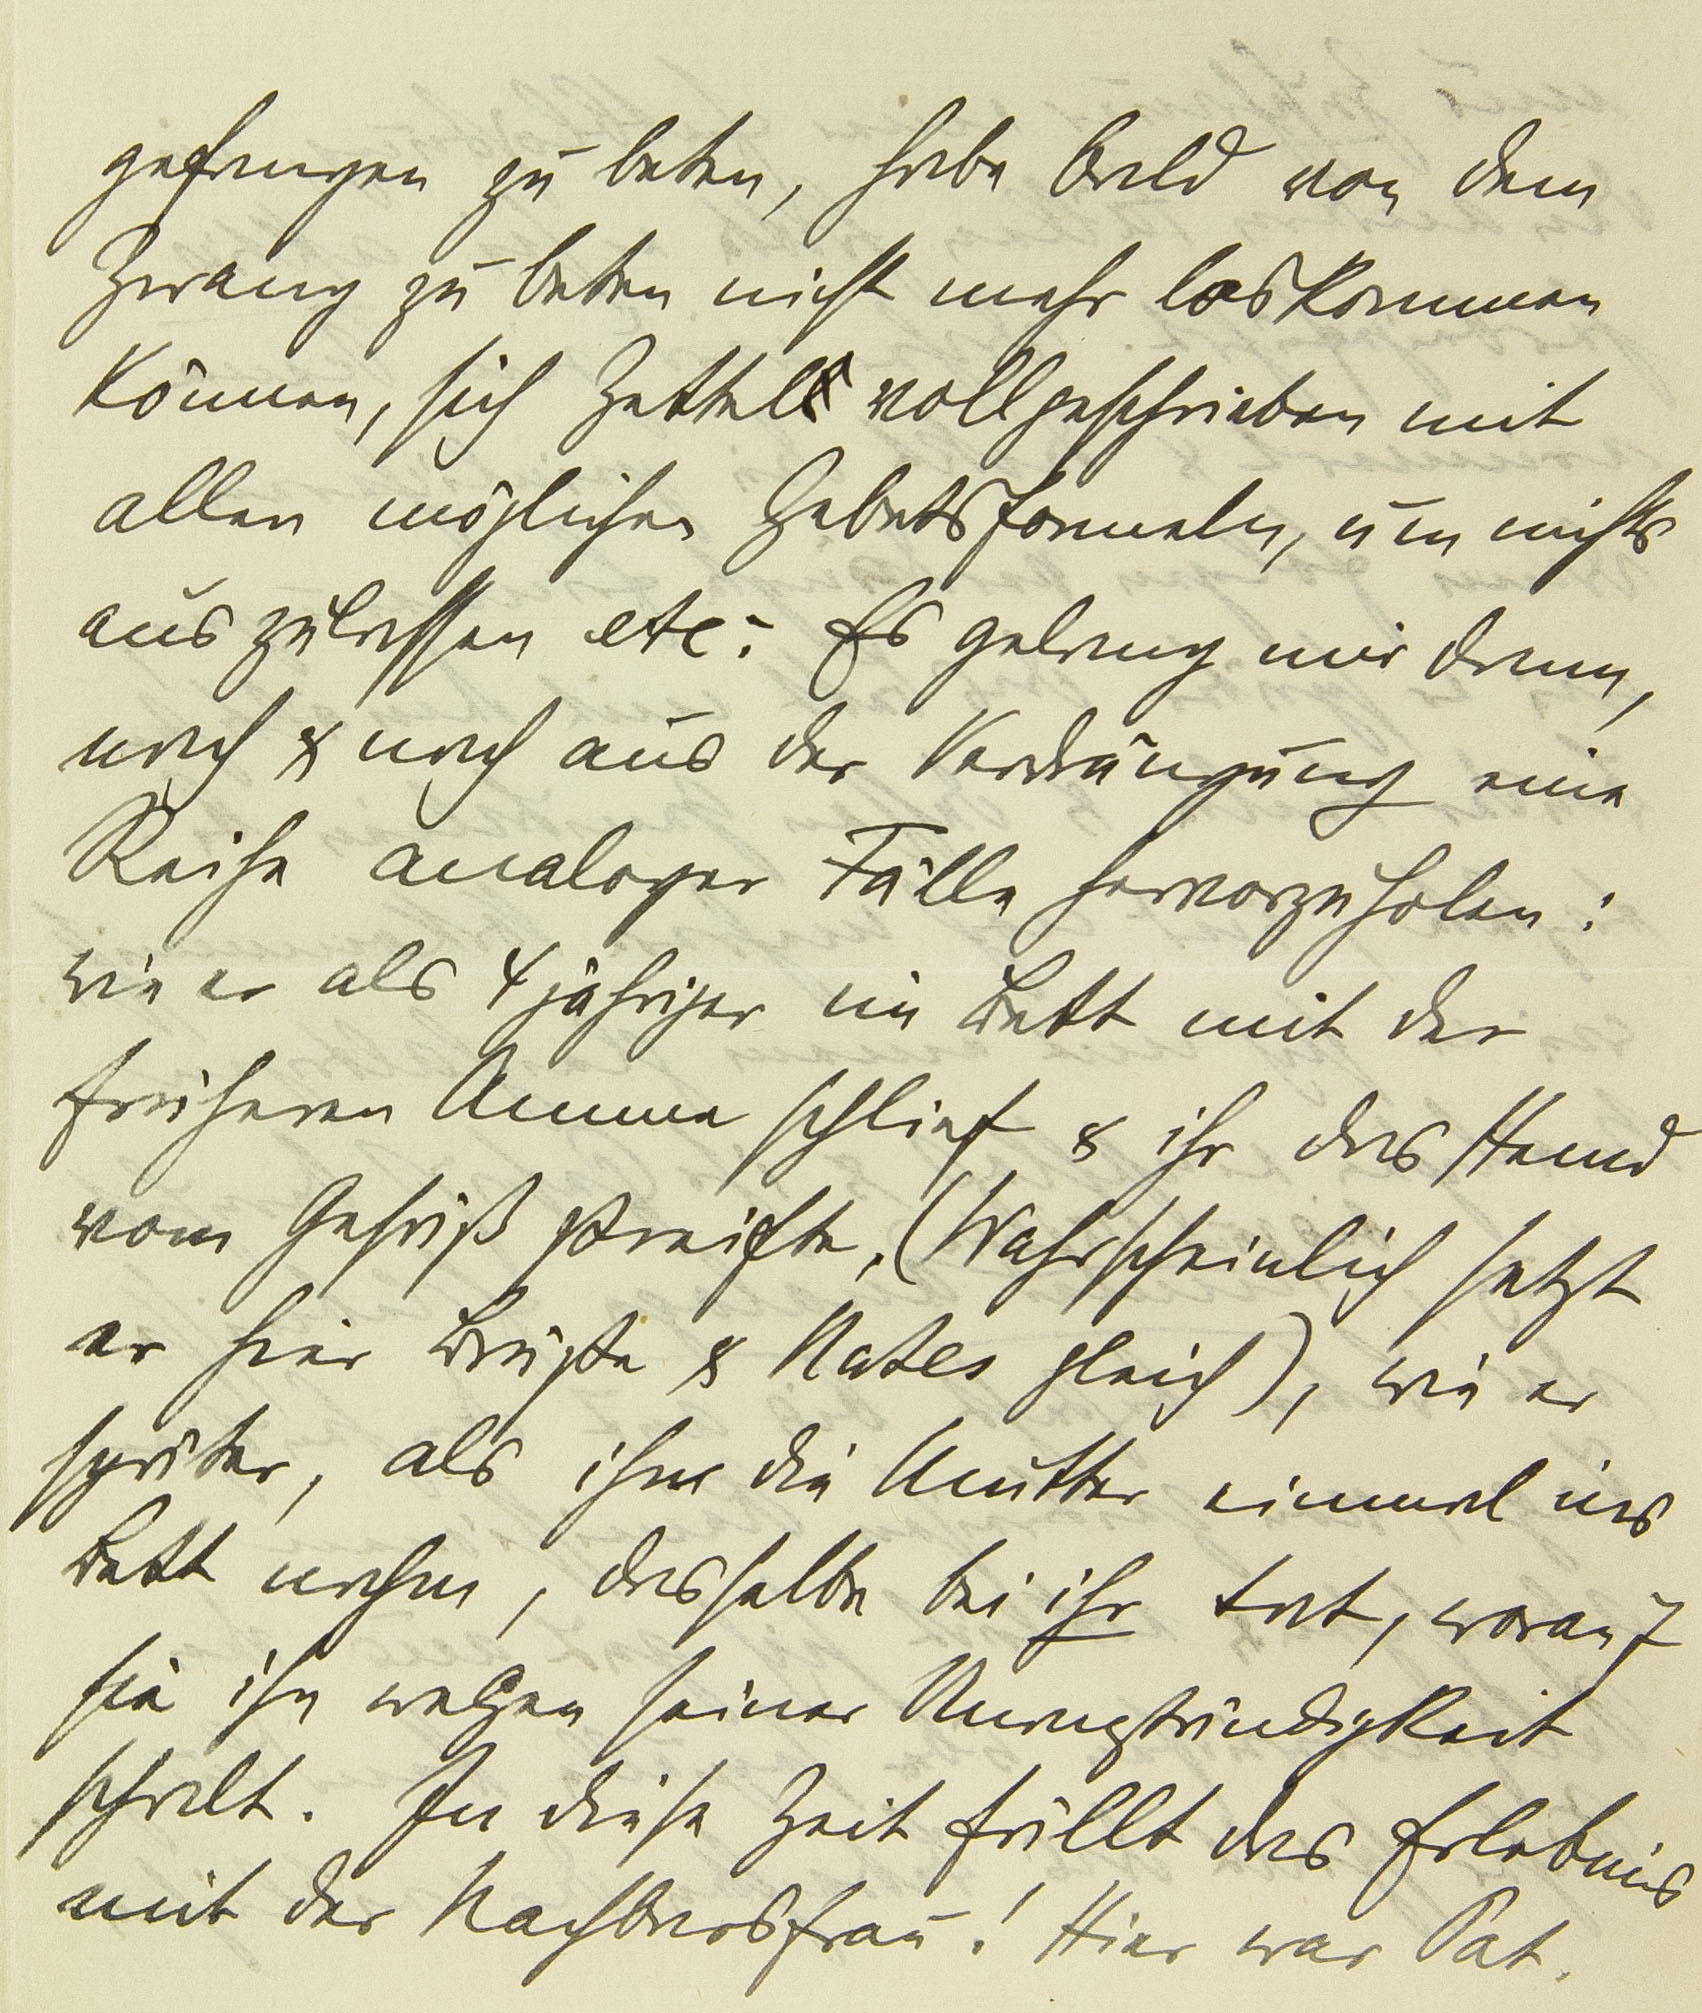 gefangen zu beten, habe bald von dem
Zwang zu beten nicht mehr loskommen
können, sich Zettel vollgeschrieben mit
allen möglichen Gebetsformeln, um nichts
auszulassen etc. Es gelang mir dann,
nach & nach aus der Verdrängung eine
Reihe analoger Fälle hervorzuholen:
wie er als 4jähriger im Bett mit der
früheren Amme schlief & ihr das Hemd
vom Gesäß streifte, (Wahrscheinlich setzt
er hier Brüste & Nates gleich), wie er
später, als ihn die Mutter einmal ins
Bett nahm, dasselbe bei ihr tat, worauf
sie ihn wegen seiner Unanständigkeit
schalt. In diese Zeit fällt das Erlebnis
mit der Nachbarsfrau! Hier war Pat.